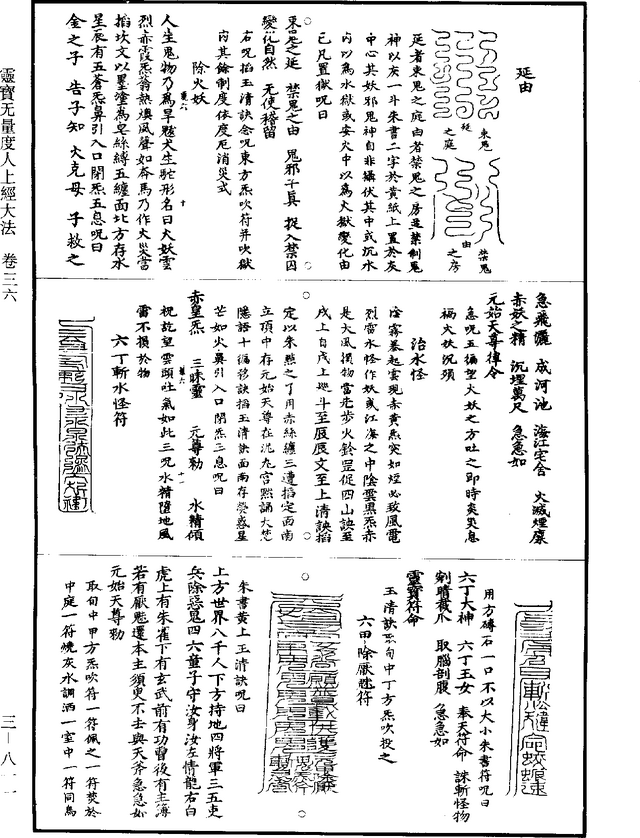 靈寶无量度人上經大法 卷三六
三—八一一
延由
東鬼
延
之庭
禁鬼
由
之房
延者東鬼之庭由者禁鬼之房造禁制鬼
神以灰一斗朱書二字於黄紙上置於灰
中心其妖邪鬼神自非攝伏其中或沉水
内以為水獄或安火中以為火獄變化由
已凡置獄呪曰
東鬼之延 禁鬼之由 鬼邪干真 捉入禁囚
變化自然 无使稽留
右呪掐玉清訣念呪東方炁吹符并吹獄
内其餘制度依度厄消災式
除火妖
人生鬼物乃為旱魃犬生駝形名曰火妖雲
烈赤霞炁蓊熱燠風聲如奔馬乃作火災當
掐坎文以墨塗為皂絲縛五纏面北方存水
星辰有五蒼炁鼻引入口閉炁五息呪曰
金之子 告子知 火克母 子救之
急飛灑 成河池 海江宅舍 火滅煙縻
赤妖之精 沉埋萬尺 急急如
元始天尊律令
急呪五徧望火妖之方吐之即時炎災息
禍火妖沉殞
治水怪
陰霧暮起雲現赤黄炁突如煙必致風電
烈雷水怪作妖或江海之中陰雲黑炁赤
是大風損物當先步火鈴罡促四山訣至
戌上自戌上巡斗至辰辰文至上清訣掐
定以朱點之了用赤絲纏三遭掐定面南
立頂中存元始天尊在泥丸宫黙誦大梵
隱語十徧移訣掐玉清訣面南存熒惑星
芒如火鼻引入口閉炁三息呪曰
赤皇炁 三昧靈 元尊勑 水精傾
祝訖望雲頭吐氣如此三呪水精墮地風
雷不損於物
六丁斬水怪符
用方磚石一口不以大小朱書符呪曰
六丁大神 六丁玉女 奉天符命 誅斬怪物
剜睛截爪 取腦剖腹 急急如
靈寶符命
玉清訣炁旬中丁方炁吹投之
六甲除厭魅符
朱書黄上玉清訣呪曰
上方世界八千人下方持地四將軍三五吏
兵除惡鬼四六童子守汝身汝左情龍右白
虎上有朱雀下有玄武前有功曹後有主簿
若有厭魅還本主須臾不去與天斧急急如
元始天尊勑
取旬中甲方炁吹符一符佩之一符焚於
中庭一符燒灰水調洒一室中一符同烏